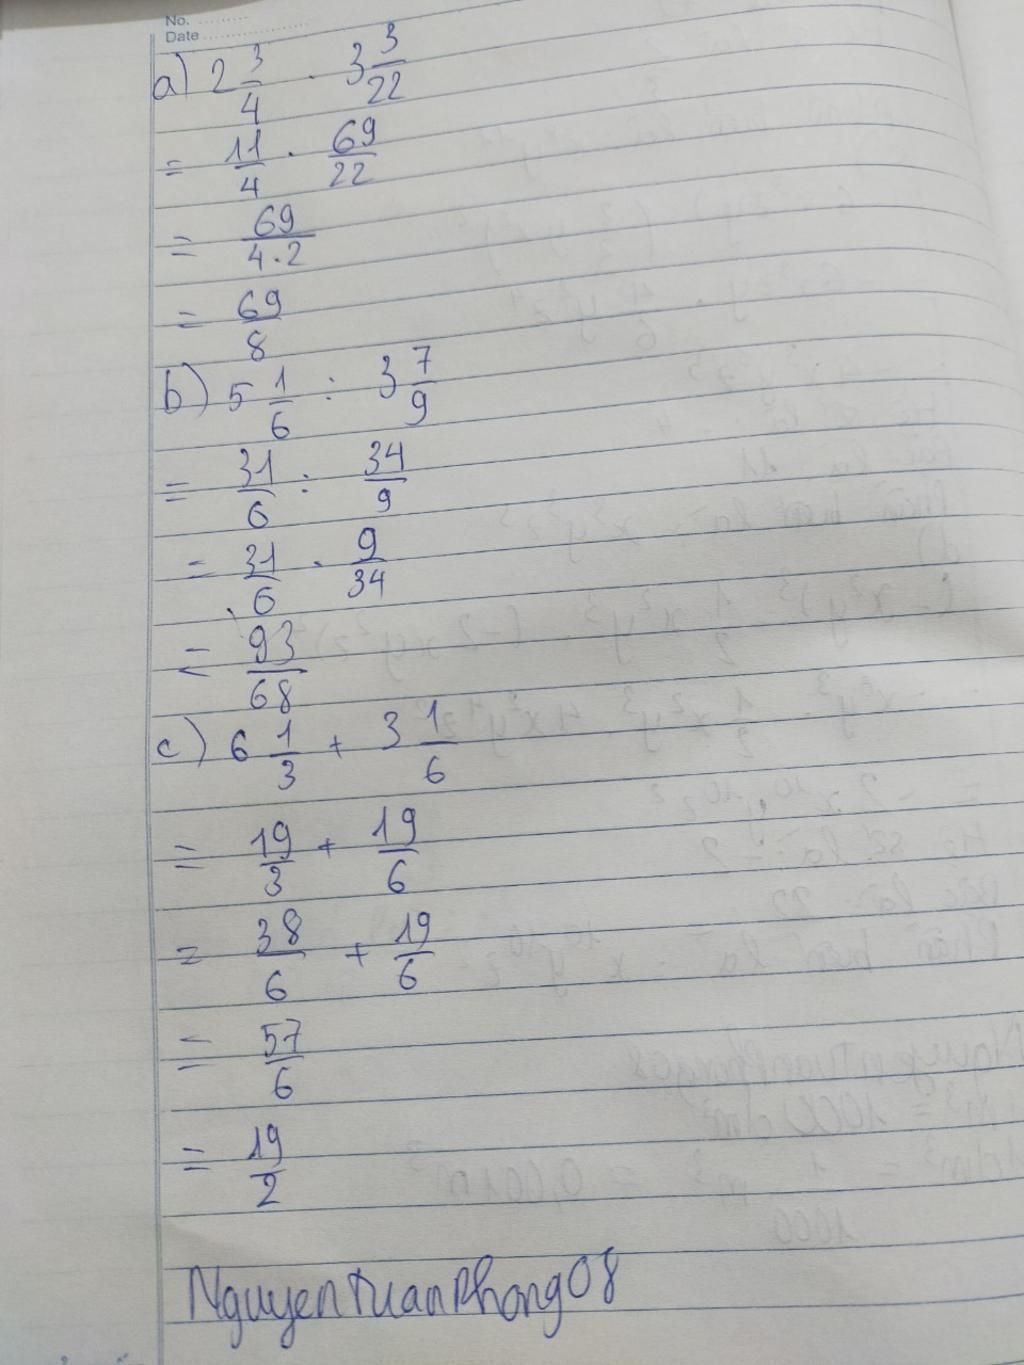 No. ..........
Date ..................
a) 2 3/4 . 3 3/22
= 11/4 . 69/22
= 69/4.2
= 69/8
b) 5 1/6 : 3 7/9
= 31/6 : 34/9
= 31/6 . 9/34
= 93/68
c) 6 1/3 + 3 1/6
= 19/3 + 19/6
= 38/6 + 19/6
= 57/6
= 19/2
NguyenTuanPhong08